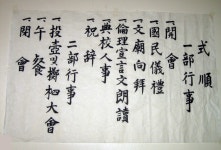 式順
一部行事
一開會
一國民儀禮
一文廟向拜
一倫理宣言文朗讀
一典校人事
一祝辭
二部行事
一投壺및擲柶大會
一午餐
一閉會